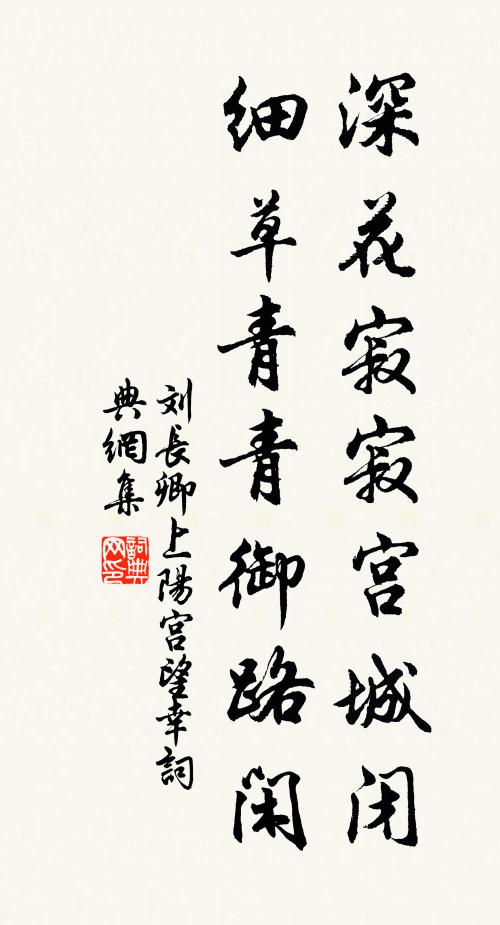 深花寂寂宫城闭
细草青青御路闲
刘長卿上陽宫望幸詞
典網集
詞典网印